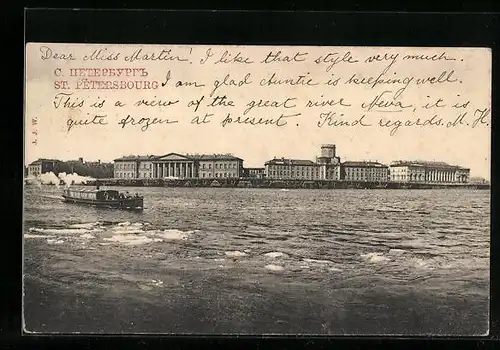 Dear Miss Martin! I like that style very much.
С. ПЕТЕРБУРГЪ
ST. PÉTERSBOURG
I am glad Auntie is keeping well.
This is a view of the great river Neva, it is
quite frozen at present. Kind regards. M. H.
J. J. W.